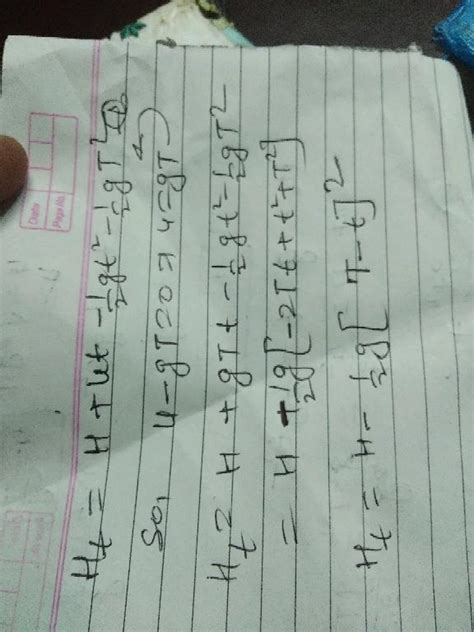 Date
Page No.
H_t = H + ut - 1/2 gt² - 1/2 gT²
So, u - gT = 0 ⇒ u = gT
H_t = H + gTt - 1/2 gt² - 1/2 gT²
= H + 1/2 g[-2Tt + t² + T²]
H_t = H - 1/2 g[T - t]²